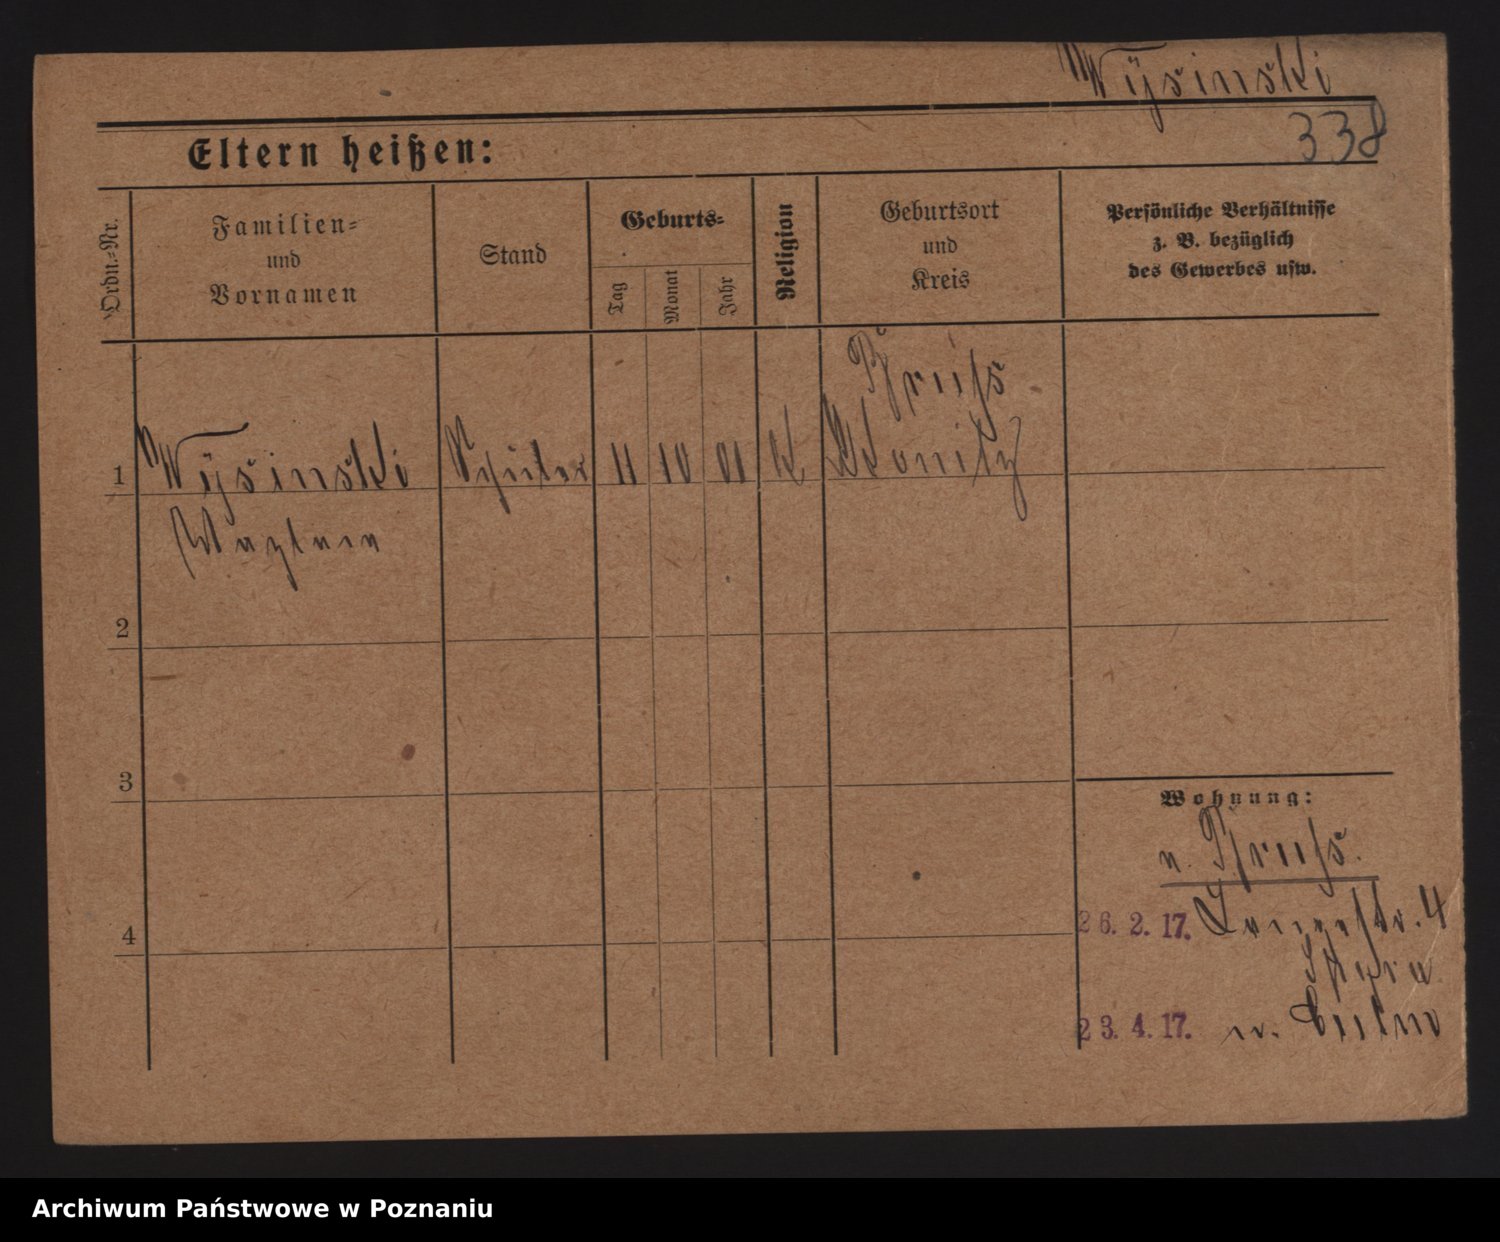 Wysinski
338
Eltern heißen:
Ordn.-Nr.
Familien-
und
Vornamen
Stand
Geburts-
Tag
Monat
Jahr
Religion
Geburtsort
und
Kreis
Persönliche Verhältnisse
z. B. bezüglich
des Gewerbes usw.
1
Wysinski
Schüler
11
10
01
K
Konitz
2
3
4
Wohnung:
26. 2. 17. Langestr. 4
23. 4. 17. n. Culm
Archiwum Państwowe w Poznaniu